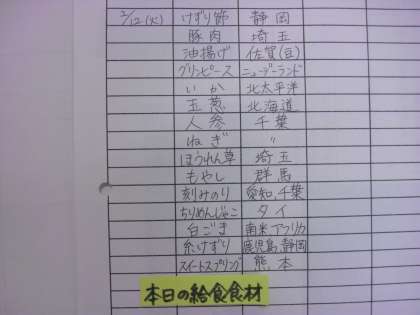 2/12(火) けずり節 静岡
豚肉 埼玉
油揚げ 佐賀(豆)
グリンピース ニュージーランド
いか 北太平洋
玉葱 北海道
人参 千葉
ねぎ 〃
ほうれん草 埼玉
もやし 群馬
刻みのり 愛知、千葉
ちりめんじゃこ タイ
白ごま 南米、アフリカ
糸けずり 鹿児島、静岡
スイートスプリング 熊本
本日の給食食材